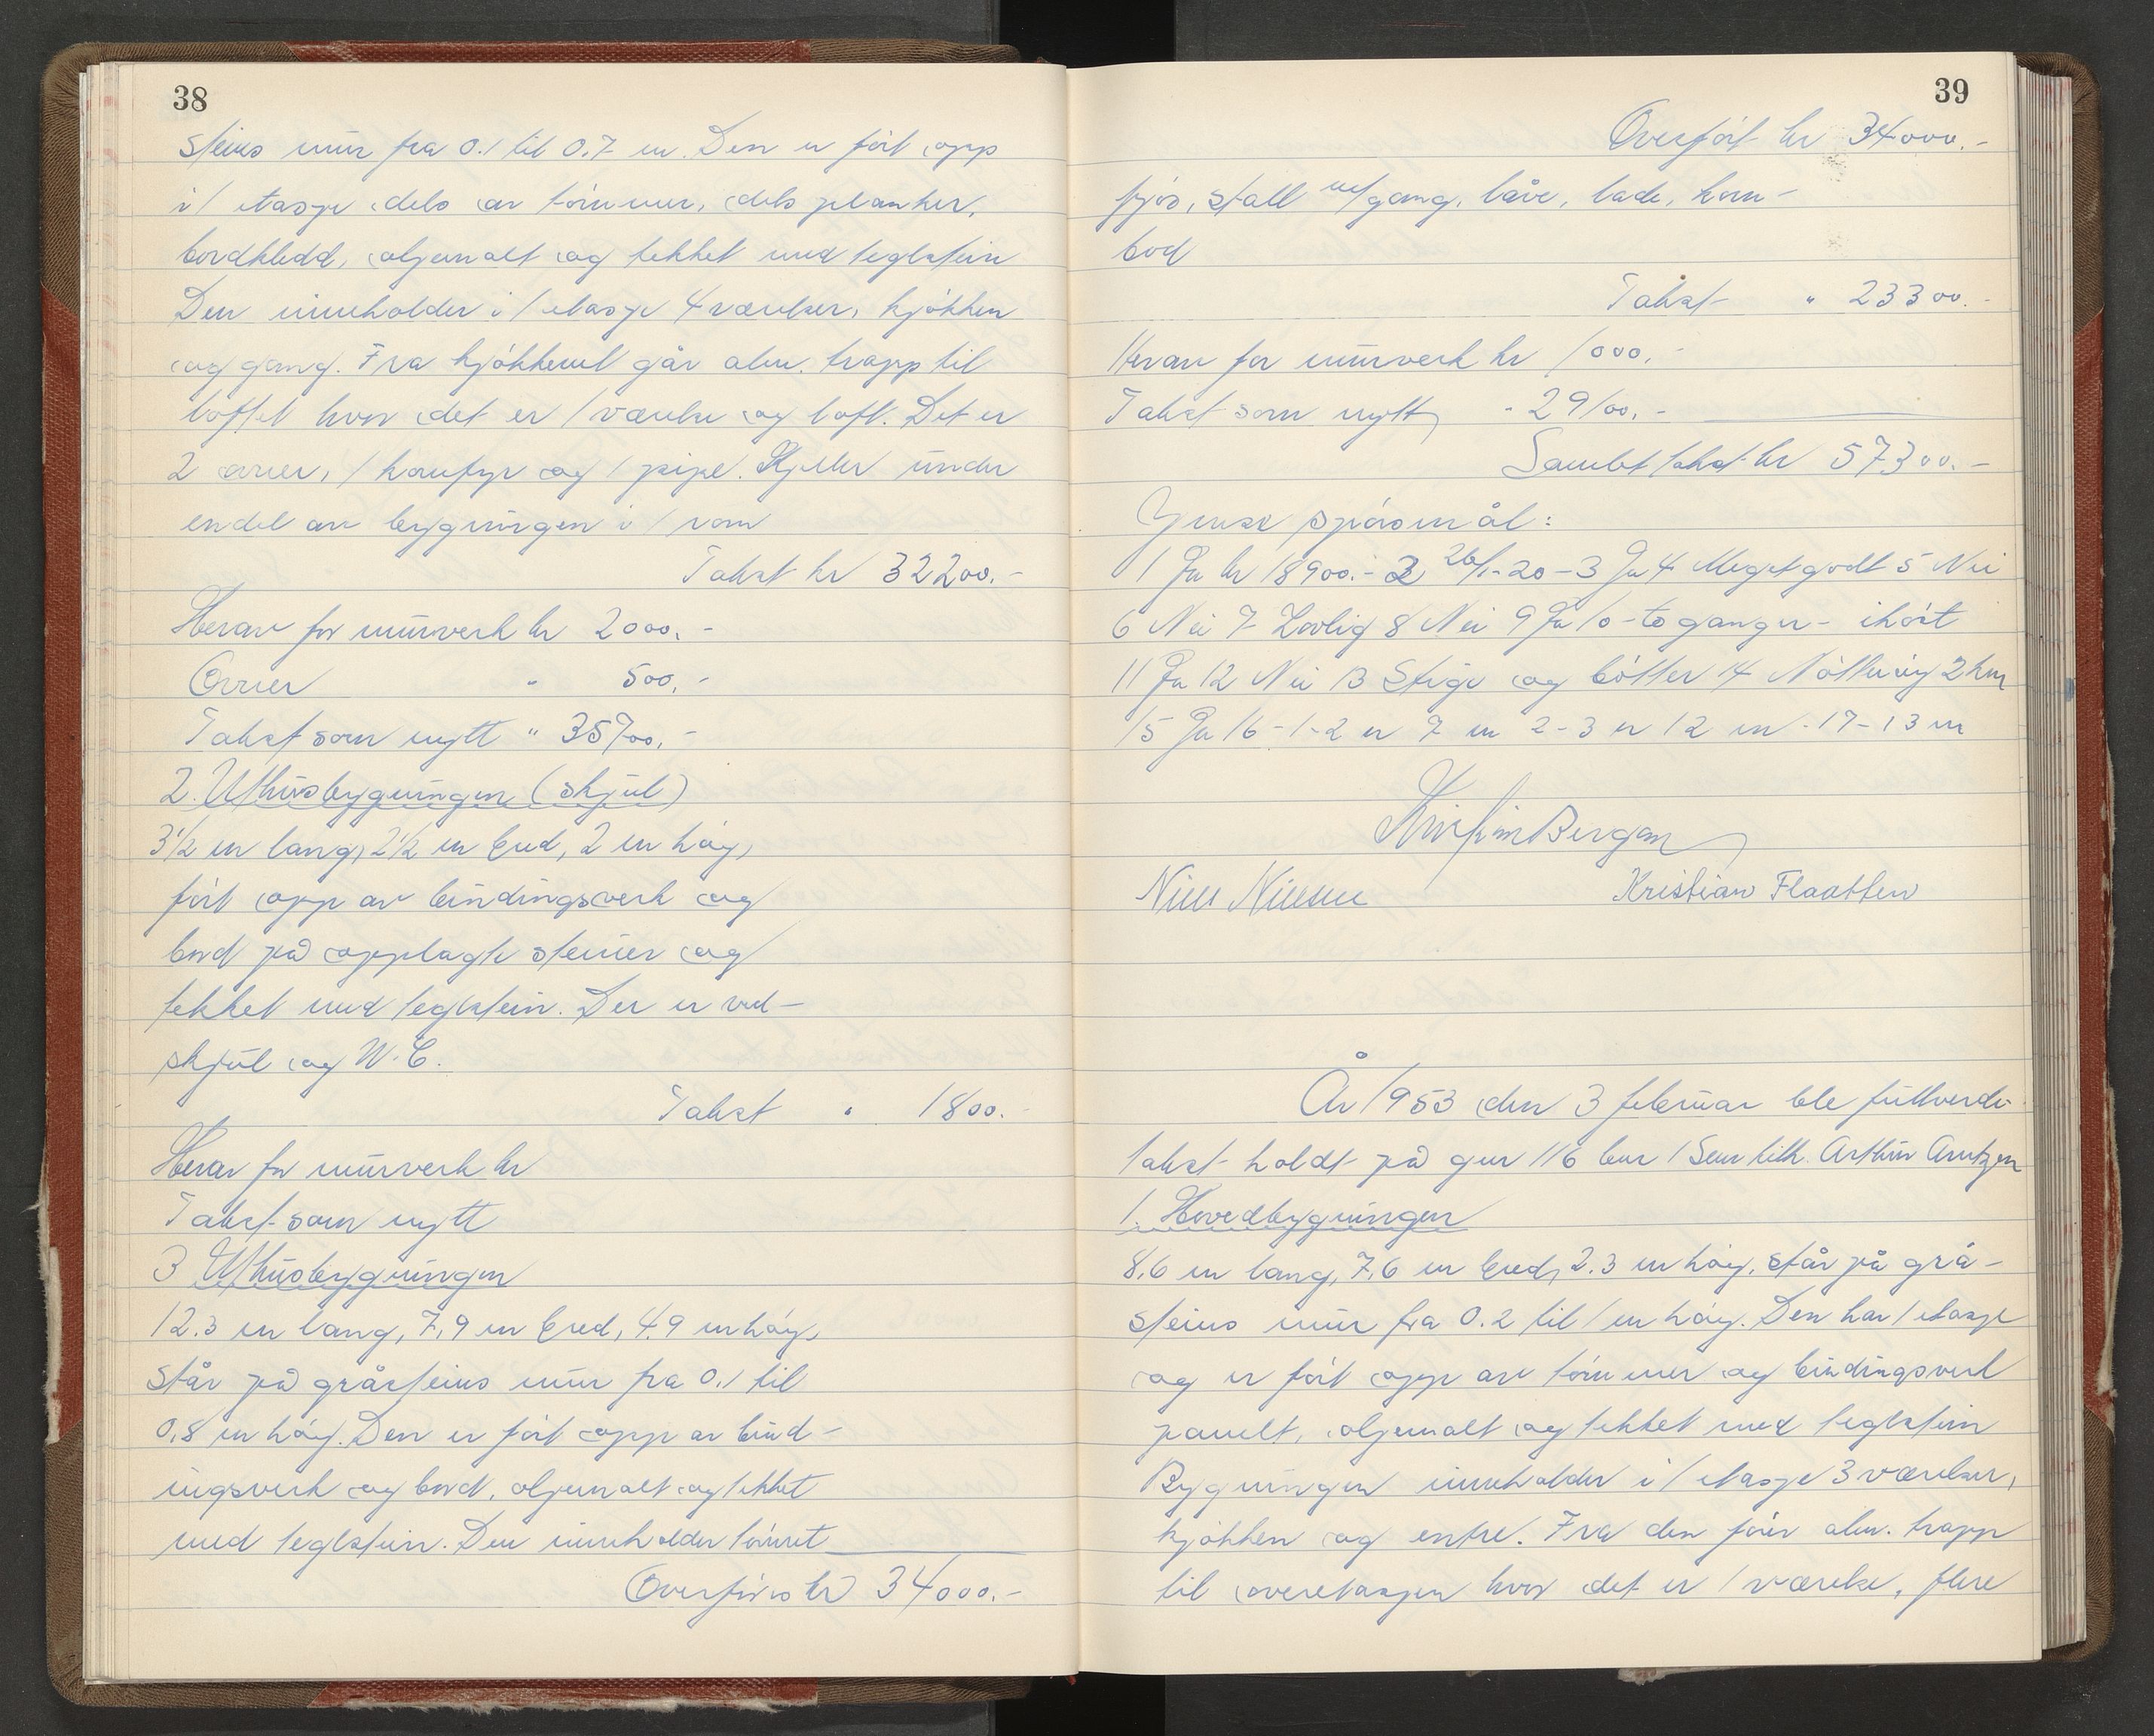 38
steins mur fra 0.1 til 0.7 m. Den er ført opp
i 1 etasje dels av tømmer, dels planker,
bordkledd, oljemalt og tekket med teglstein
Den inneholder i 1 etasje 4 værelser, kjøkken
og gang. Fra kjøkkenet går alm. trapp til
loftet hvor det er 1 værelse og loft. Det er
2 ovner, 1 komfyr og 1 pipe. Kjeller under
endel av bygningen i 1 rom
Takst kr 32200.-
Herav for murverk kr 2000.-
Ovner " 500.-
Takst som nytt " 35700.-
2. Uthusbygningen (skjul)
3½ m lang, 2½ m bred, 2 m høy,
ført opp av bindingsverk og
bord på opplagte steiner og
tekket med teglstein. Der er ved-
skjul og W.C.
Takst " 1800.-
Herav for murverk kr
Takst som nytt
3 Uthusbygningen
12.3 m lang, 7,9 m bred, 4.9 m høy,
står på gråsteins mur fra 0.1 til
0,8 m høy. Den er ført opp av bind-
ingsverk og bord, oljemalt og tekket
med teglstein. Den inneholder tømret
Overføres kr 34000.-
39
Overført kr 34000.-
fjøs, stall m/gang, låve, lade, korn-
bod
Takst " 23300.-
Herav for murverk kr 1000.-
Takst som nytt - 29100.-
Samlet takst kr 57300.-
Ymse spørsmål:
1 Ja kr 18900.- 2 26/1-20 - 3 Ja 4 Meget godt 5 Nei
6 Nei 7 Lovlig 8 Nei 9 Ja 10 - to ganger - i høst
11 Ja 12 Nei 13 Stige og bøtter 14 Nøtterøy 2 km
15 Ja 16 - 1-2 er 7 m 2-3 er 12 m - 17 - 13 m
Bergan
Nils Nilsen Kristian Flaatten
År 1953 den 3 februar ble fullverdi-
takst holdt på gnr 116 bnr 1 Sem tilh. Arthur Arntzen
1. Hovedbygningen
8,6 m lang, 7,6 m bred, 2.3 m høy, står på grå-
steins mur fra 0.2 til 1 m høy. Den har 1 etasje
og er ført opp av tømmer og bindingsverk
panelt, oljemalt og tekket med teglstein
Bygningen inneholder i 1 etasje 3 værelser,
kjøkken og entre. Fra den fører alm. trapp
til overetasjen hvor det er 1 værelse, flere